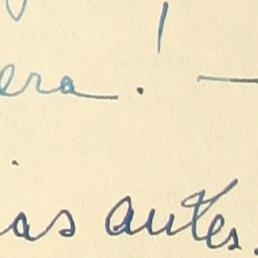 era! —
ias antes.